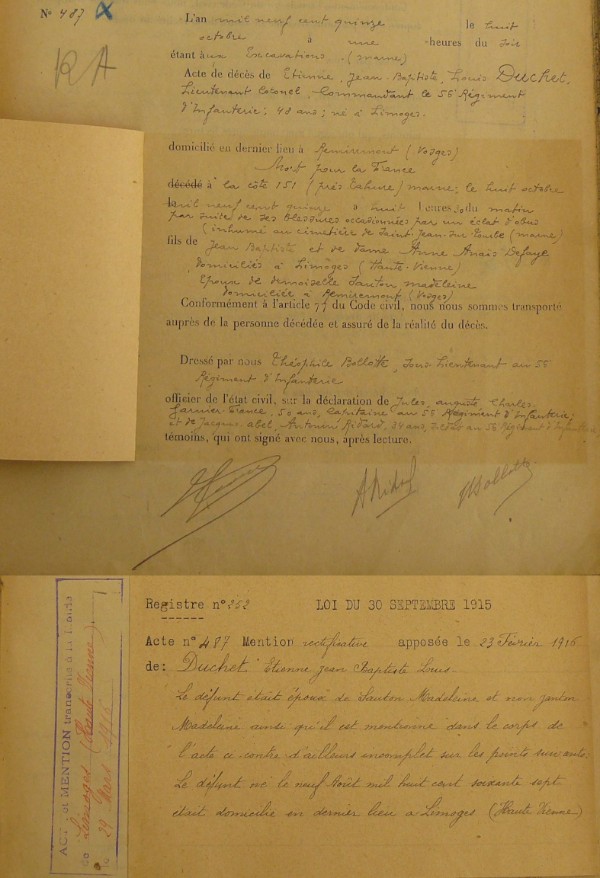 N° 487
RA
L'an mil neuf cent quinze le huit
octobre à une heures du soir
étant aux Excavations (marne)
Acte de décès de Etienne, Jean-Baptiste, Louis Duchet,
Lieutenant Colonel, Commandant le 56 Régiment
d'Infanterie; 48 ans; né à Limoges.
domicilié en dernier lieu à Remiremont (Vosges)
Mort pour la France
décédé à la côte 151 (près Tahure) marne; le huit octobre
mil neuf cent quinze à huit heures du matin
par suite de ses blessures occasionnées par un éclat d'obus
(inhumé au cimetière de Saint-Jean-sur Tourbe (marne)
fils de Jean Baptiste et de dame Anne Anaïs Defaye
domiciliés à Limôges (Haute-Vienne)
Epoux de demoiselle Janton, madeleine
domiciliée à Remiremont (Vosges)
Conformément à l'article 77 du Code civil, nous nous sommes transporté
auprès de la personne décédée et assuré de la réalité du décès.
Dressé par nous Théophile Bollotte, Sous-Lieutenant au 56
Régiment d'Infanterie
officier de l'état civil, sur la déclaration de Jules, auguste, Charles,
50 ans, Capitaine au 56 Régiment d'Infanterie;
et de Jacques, abel, Antonin Ridard, 24 ans, au 56 Régiment d'Infanterie
témoins, qui ont signé avec nous, après lecture.
ARidard
Bollotte
Registre n° 252 LOI DU 30 SEPTEMBRE 1915
Acte n° 487 Mention rectificative apposée le 23 Février 1916
de: Duchet Etienne Jean Baptiste Louis
Le défunt était époux de Santon Madeleine et non Janton
Madeleine ainsi qu'il est mentionné dans le corps de
l'acte ci-contre d'ailleurs incomplet sur les points suivants:
Le défunt né le neuf Août mil huit cent soixante sept
était domicilié en dernier lieu à Limoges (Haute Vienne)
ACTE et MENTION transcrits à la Mairie
de Limoges (Haute Vienne)
le 29 Mars 1916